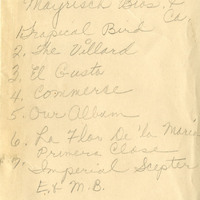 Mayrisch Bros. & Co.
1. Tropical Bird
2. The Villard
3. El Gusto
4. Commerse
5. Our Album
6. La Flor De La Maria
Primera Close
7. Imperial Scepter
E. & M.B.